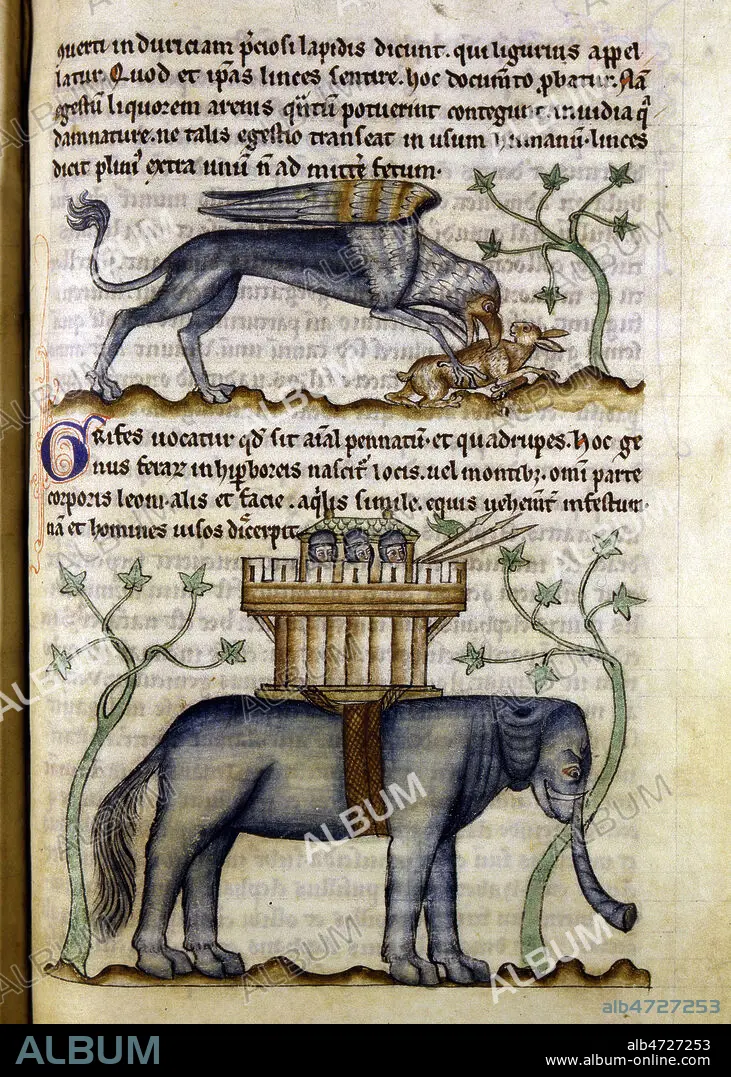 querti in duriciam p̄ciosi lapidis dicunt. qui ligurius appel
latur. Quod et ip̄as linces sentire. hoc documto ꝓbatur. Nam
egestū liquorem arenis q̄ntū potuerint contegunt. inuidia q̄
damnature. ne talis egestio transeat in usum humanū. linces
dicit plinī extra unū n̄ ad mittere fetum.
Grifes uocatur qd̄ sit aīal pennatū. et quadrupes. hoc ge
nus ferar in hiꝑboreis nascit̄ locis. uel montibꝫ. omī parte
corporis leoni. alis et facie. aq̄lis simile. equis uehemt̄ infestum.
nā et homines uisos discerpit.
ALBUM
alb4727253
ALBUM
alb4727253
www.album-online.com